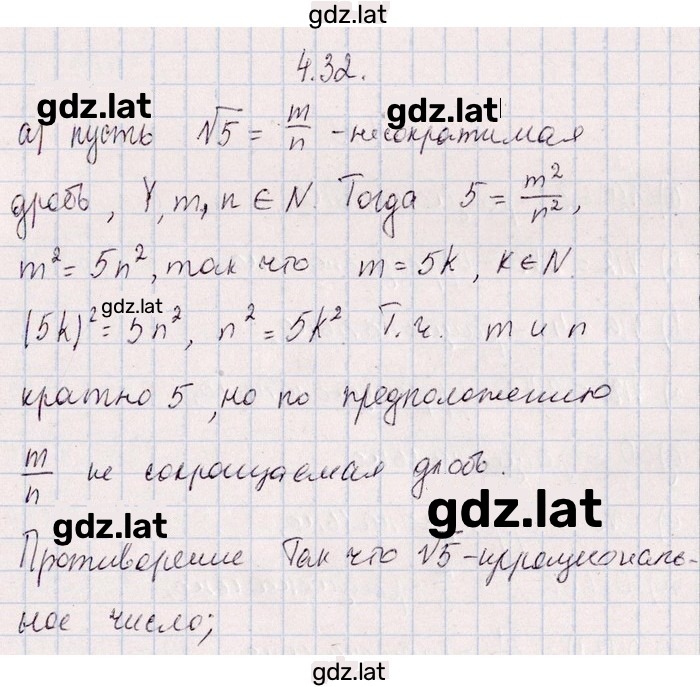 gdz.lat
4.32.
gdz.lat
gdz.lat
а) пусть √5 = m/n - несократимая
дробь, m, n ∈ N. Тогда 5 = m²/n²,
m² = 5n², так что m = 5k, k ∈ N.
gdz.lat
(5k)² = 5n², n² = 5k². Т.ч. m и n
кратно 5, но по предположению
m/n не сокращаемая дробь.
gdz.lat
gdz.lat
Противорение Так что √5 - иррациональ-
ное число;
gdz.lat